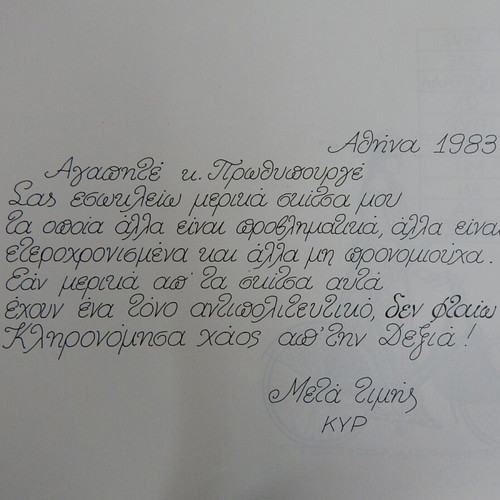 Αθήνα 1983
Αγαπητέ κ. Πρωθυπουργέ
Σας εσωκλείω μερικά σκίτσα μου
τα οποία άλλα είναι προβληματικά, άλλα είναι
ετεροχρονισμένα και άλλα μη προνομιούχα.
Εάν μερικά απ' τα σκίτσα αυτά
έχουν ένα τόνο αντιπολιτευτικό, δεν φταίω
Κληρονόμησα χάος απ' την Δεξιά!
Μετά τιμής
ΚΥΡ